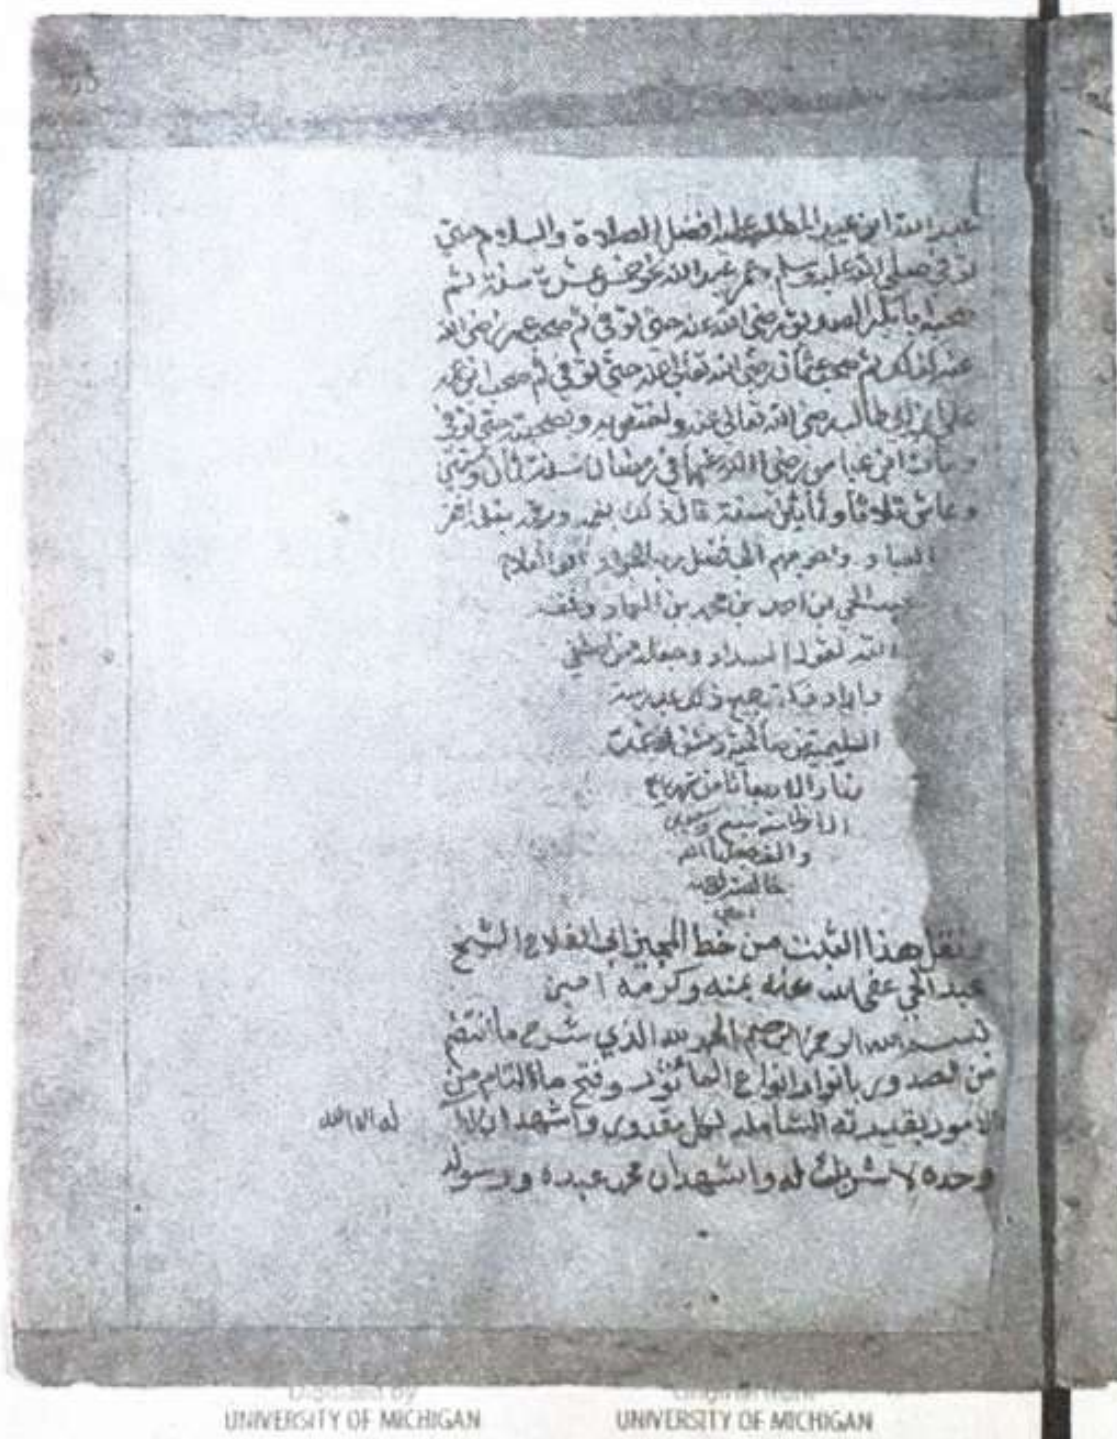 عبد الله ابن عبد المطلب عليه افضل الصلاة والسلام حتى
توفي صلى الله عليه وسلم وعمر عبد الله نحو خمس عشرة سنة ثم
صحب ابا بكر الصديق رضي الله عنه حتى توفي ثم صحب عمر رضي الله
عنه كذلك ثم صحب عثمان رضي الله تعالى عنه حتى توفي ثم صحب ابن عمه
علي بن ابي طالب رضي الله تعالى عنه واختص به وبصحبته حتى توفي
ومات ابن عباس رضي الله عنهما في رمضان سنة ثمان وستين
وعاش ثلاثا وثمانين سنة قال ذلك بفمه ورقمه بقلمه افقر
العباد واحوجهم الى فضل رب الجواد ابو الفلاح
عبد الحي بن احمد بن محمد بن العماد وفقه
الله لقول السداد وجعله من
ذلك بمدرسة
السليمية من صالحية دمشق
نهار الاربعاء ثامن
سبع
والف
خالصة
امين
ونقل هذا الثبت من خط المجيز ابي الفلاح الشيخ
عبد الحي عفى الله عنه بمنه وكرمه امين
بسم الله الرحمن الرحيم الحمد لله الذي شرح ما انتقم
من الصدور بانواد انواع الماثور وفتح ما التام من
الامور بقدرته الشاملة لكل مقدور واشهد ان لا اله الا الله
وحده لا شريك له واشهد ان محمد عبده ورسوله
UNIVERSITY OF MICHIGAN
UNIVERSITY OF MICHIGAN